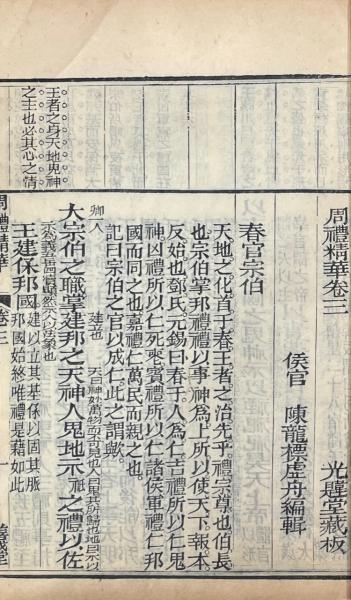 周禮精華卷三
光韙堂藏板
侯官 陳龍標虛舟編輯
春官宗伯
天地之化首于春王者之治先乎禮宗尊也伯長
也宗伯掌邦禮禮以事神為上所以使天下報本
反始也鄧氏元錫曰春于人為仁吉禮所以仁鬼
神凶禮所以仁死喪賓禮所以仁諸侯軍禮仁邦
國而同之也嘉禮仁萬民而親之也
記曰宗伯之官以成仁此之謂歟
卿一人
大宗伯之職掌建邦之天神人鬼地示之禮以佐
建立也
王建保邦國
建以立其基保以固其脈
邦國始終唯禮是藉如此
王者之身天地鬼神
之主也必其心之情
周禮精華
卷三
一